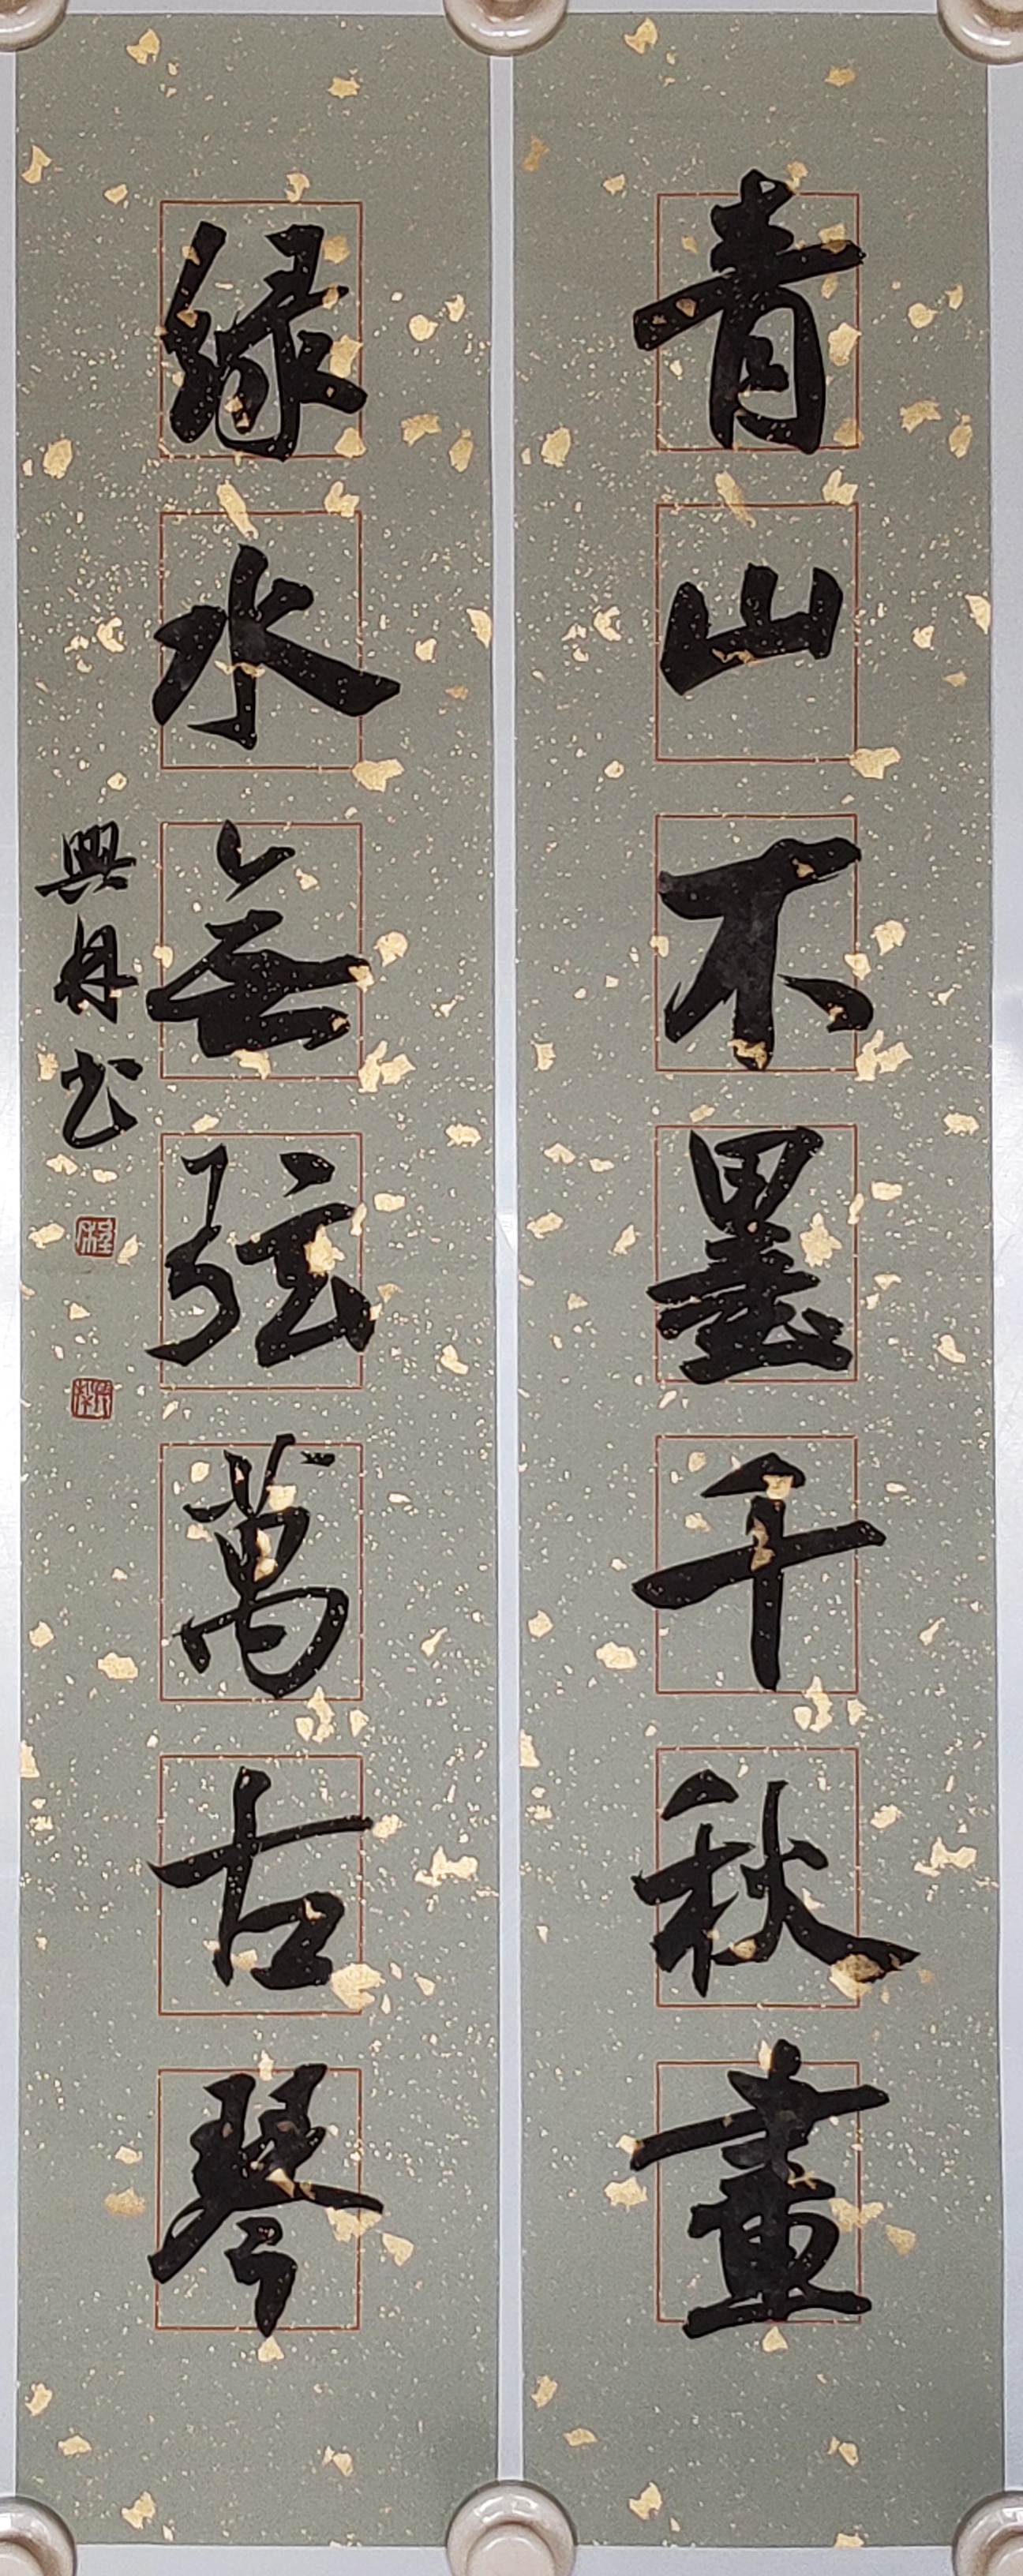 青山不墨千秋畫
綠水無弦萬古琴
興月书
程